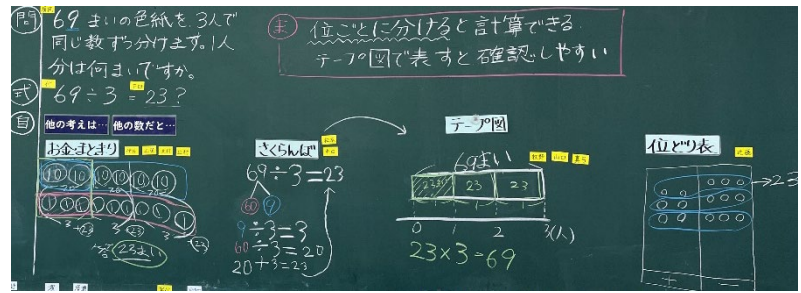 問
69まいの色紙を3人で
同じ数ずつ分けます。1人
分は何まいですか。
式
69÷3=23?
ま
位ごとに分けると計算できる
テープ図で表すと確認しやすい
自
他の考えは…
他の数だと…
お金まとまり
10 10 10 10 10 10
20 20 20
1 1 1 1 1 1 1 1 1
3 3 3
23 23 23
23まい
さくらんぼ
69÷3=23
60 9
9÷3=3
60÷3=20
20+3=23
テープ図
69まい
23まい 23 23
0 1 2 3(人)
23×3=69
位どり表
→23
十 一